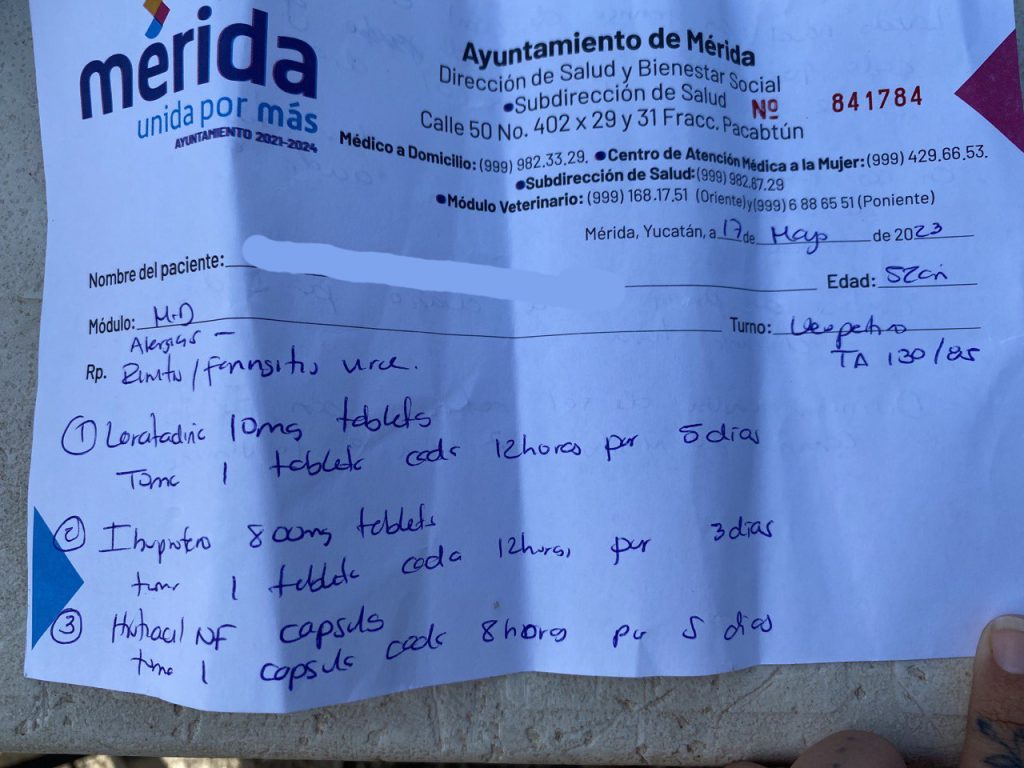 mérida
unida por más
AYUNTAMIENTO 2021-2024
Ayuntamiento de Mérida
Dirección de Salud y Bienestar Social
•Subdirección de Salud
Nº 841784
Calle 50 No. 402 x 29 y 31 Fracc. Pacabtún
Médico a Domicilio: (999) 982.33.29. •Centro de Atención Médica a la Mujer: (999) 429.66.53.
•Subdirección de Salud: (999) 982.87.29
•Módulo Veterinario: (999) 168.17.51 (Oriente) y (999) 6 88 65 51 (Poniente)
Mérida, Yucatán, a 17 de Mayo de 2023
Nombre del paciente:
Edad: 52
Módulo: M.D
Turno: Vespertino
Alergias -
TA 130/85
Rp.
① Loratadina 10mg tableta
Tomar 1 tableta cada 12 horas por 5 dias
② Ibuprofeno 800mg tableta
tomar 1 tableta cada 12 horas, por 3 dias
③ NF capsula
tomar 1 capsula cada 8 horas por 5 dias